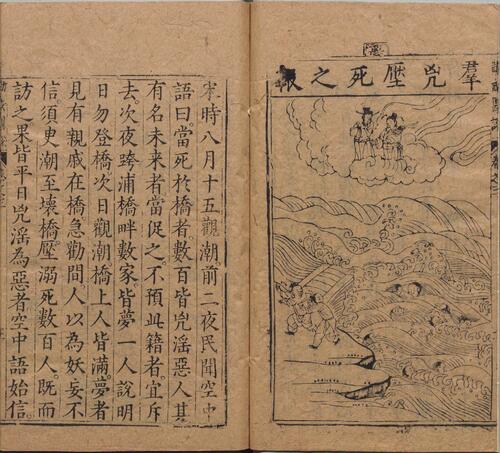 羣兇壓死之報
宋時八月十五觀潮前二夜民聞空中
語曰當死於橋者數百皆兇滛惡人其
有名未來者當促之不預此籍者宜斥
去次夜跨浦橋畔數家皆夢一人說明
日勿登橋次日觀潮橋上人皆滿夢者
見有親戚在橋急勸間人以為妖妄不
信須臾潮至壞橋壓溺死數百人既而
訪之果皆平日兇滛為惡者空中語始信